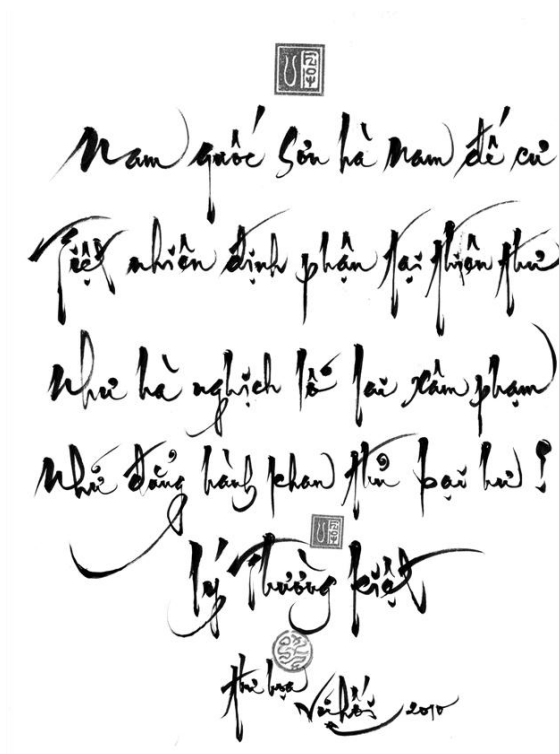 Nam quốc Sơn hà Nam đế cư
Tiệt nhiên định phận tại thiên thư
Như hà nghịch lỗ lai xâm phạm
Nhữ đẳng hành khan thủ bại hư!
Lý Thường Kiệt
thư họa
2010